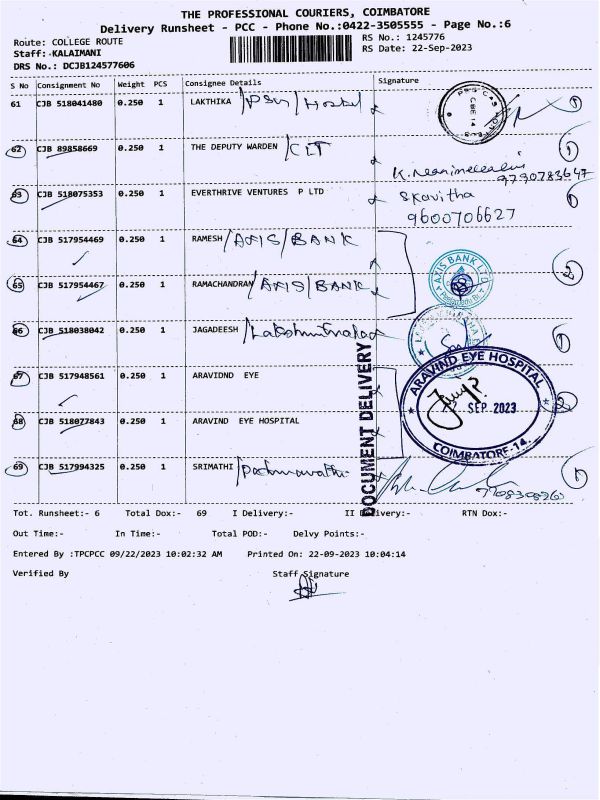 THE PROFESSIONAL COURIERS, COIMBATORE
Delivery Runsheet - PCC - Phone No.:0422-3505555 - Page No.:6
Route: COLLEGE ROUTE
RS No.: 1245776
Staff: KALAIMANI
RS Date: 22-Sep-2023
DRS No.: DCJB124577606
S No Consignment No Weight PCS Consignee Details Signature
61 CJB 518041480 0.250 1 LAKTHIKA /PSG/Hostel 1
62 CJB 89858669 0.250 1 THE DEPUTY WARDEN /CIT 1
9790783647
63 CJB 518075353 0.250 1 EVERTHRIVE VENTURES P LTD S Kavitha 1
9600706627
64 CJB 517954469 0.250 1 RAMESH /AXIS/BANK
65 CJB 517954467 0.250 1 RAMACHANDRAN /AXIS/BANK 2
AXIS BANK LTD
66 CJB 518038042 0.250 1 JAGADEESH 1
67 CJB 517948561 0.250 1 ARAVIDND EYE 2
ARAVIND EYE HOSPITAL
SEP 2023
COIMBATORE-14.
68 CJB 518077843 0.250 1 ARAVIND EYE HOSPITAL
69 CJB 517994325 0.250 1 SRIMATHI /Padmavathi 1
DOCUMENT DELIVERY
Tot. Runsheet:- 6 Total Dox:- 69 I Delivery:- II Delivery:- RTN Dox:-
Out Time:- In Time:- Total POD:- Delvy Points:-
Entered By :TPCPCC 09/22/2023 10:02:32 AM Printed On: 22-09-2023 10:04:14
Verified By Staff Signature